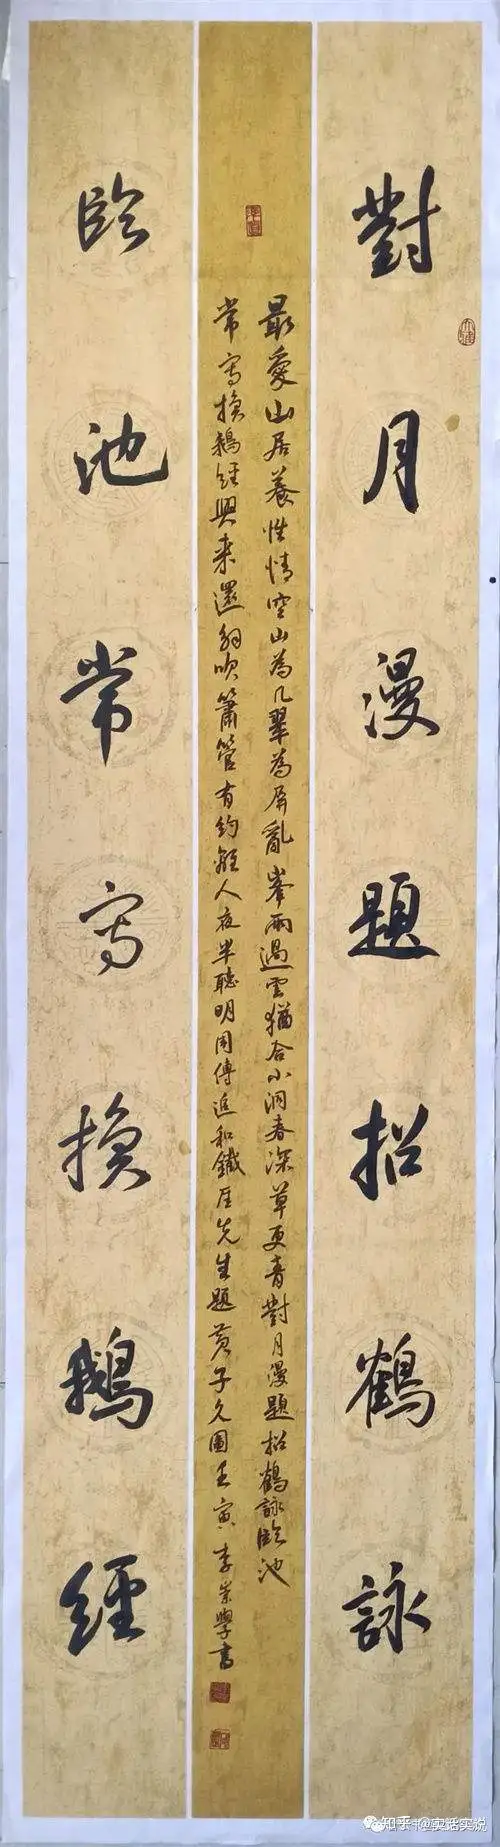 對月漫題招鶴詠
最愛山居養性情空山為几翠為屏亂峯雨過雲猶合小洞春深草更青對月漫題招鶴詠臨池
常寫換鵝經興來還吹簫管有約人夜半聽明周傅追和鐵厓先生題黃子久圖壬寅李崇學書
臨池常寫換鵝經
知乎 @实话实说